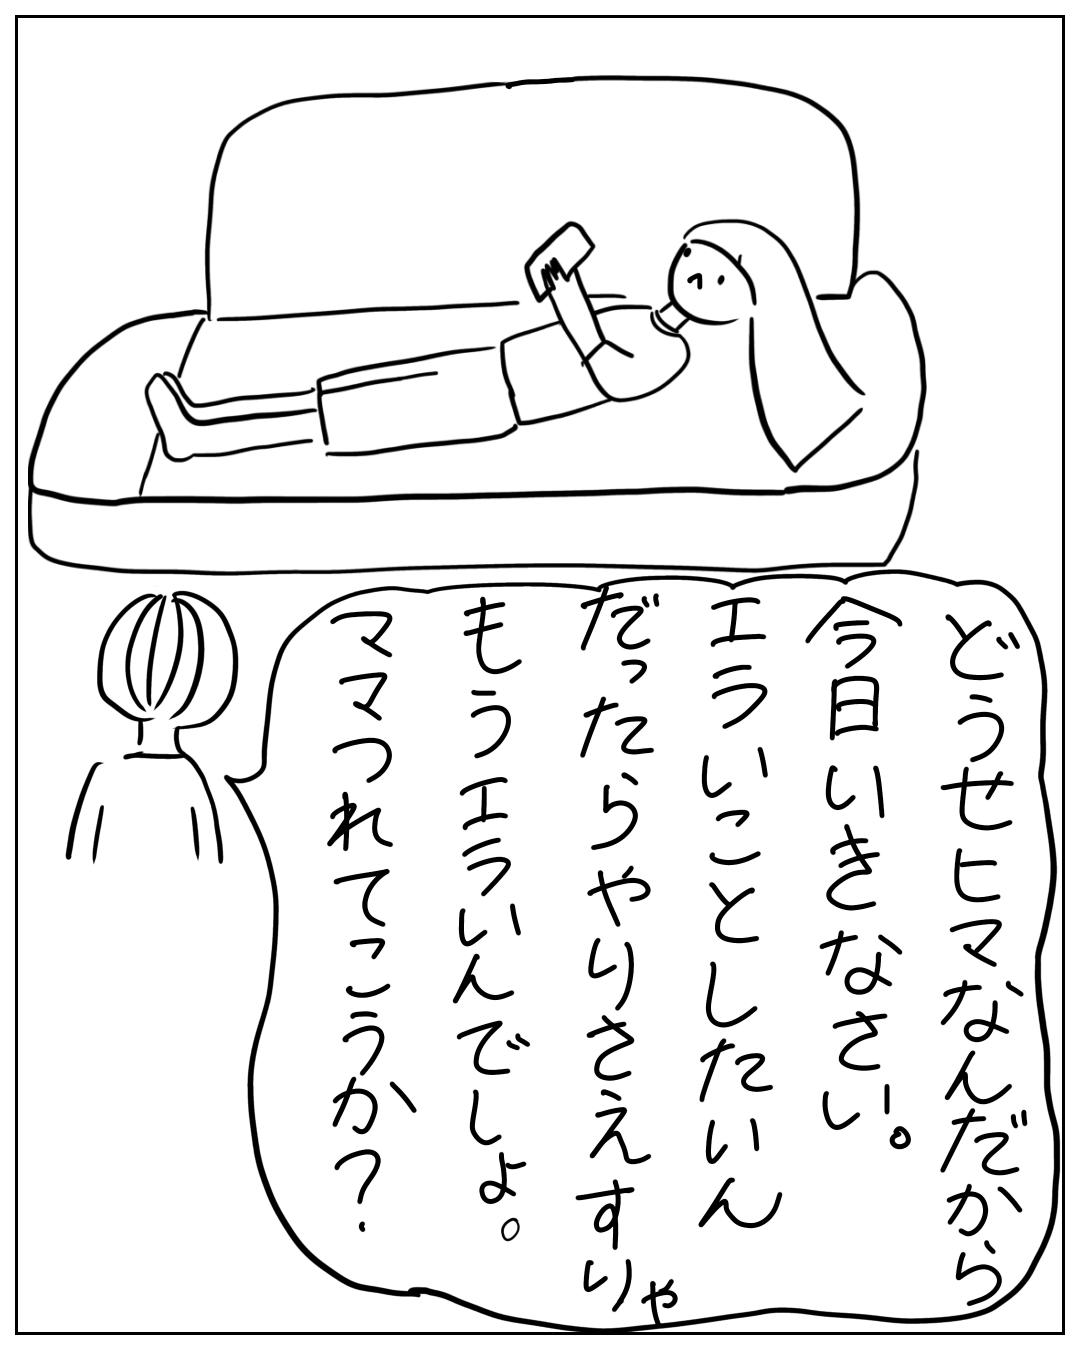 どうせヒマなんだから
今日いきなさい。
エラいことしたいん
だったらやりさえすりゃ
もうエラいんでしょ。
ママつれてこうか?